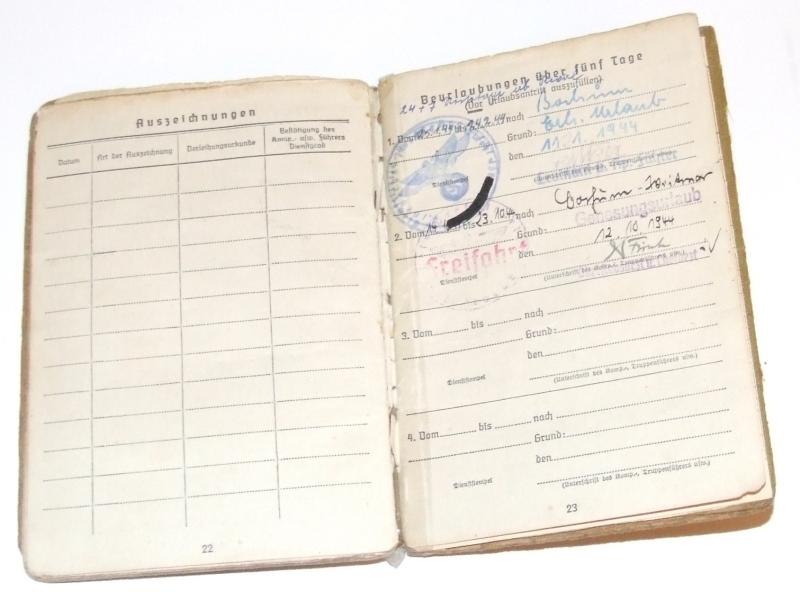 Auszeichnungen
Datum
Art der Auszeichnung
Verleihungsurkunde
Bestätigung des
Komp.- usw. Führers
Dienstgrad
22
Beurlaubungen über fünf Tage
(Vor Urlaubsantritt auszufüllen)
1. Vom bis nach Bochum
Grund: Erh. Urlaub
den 11.1.1944
Dienststempel
2. Vom bis 23.10.44 nach Bochum-Weitmar
Grund: Genesungsurlaub
den 12.10.1944
Freifahrt
Dienststempel
(Unterschrift des Komp.-, Truppenführers usw.)
3. Vom bis nach
Grund:
den
Dienststempel
(Unterschrift des Komp.-, Truppenführers usw.)
4. Vom bis nach
Grund:
den
Dienststempel
(Unterschrift des Komp.-, Truppenführers usw.)
23